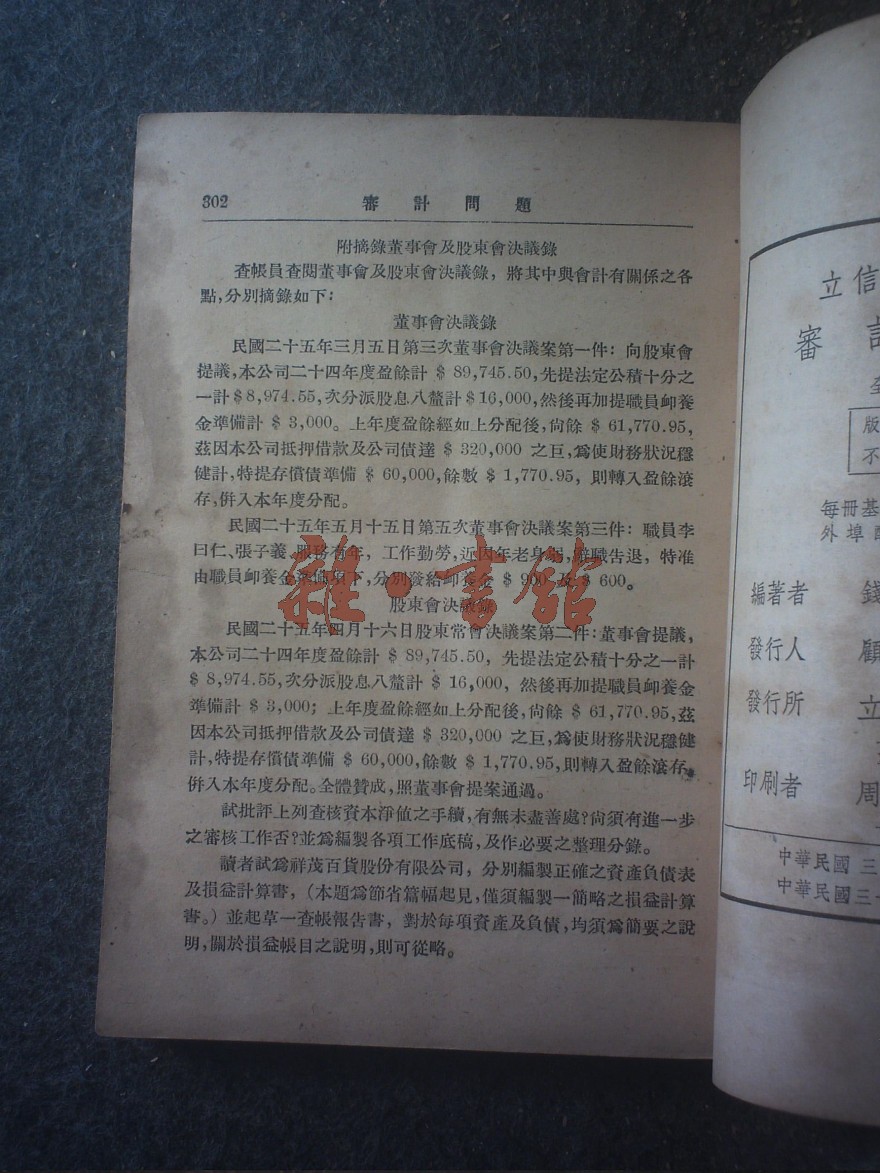 302 審計問題
附摘錄董事會及股東會決議錄
查帳員查閱董事會及股東會決議錄，將其中與會計有關係之各
點，分別摘錄如下：
董事會決議錄
民國二十五年三月五日第三次董事會決議案第一件：向股東會
提議，本公司二十四年度盈餘計 $ 89,745.50，先提法定公積十分之
一計 $ 8,974.55，次分派股息八釐計 $ 16,000，然後再加提職員卹養
金準備計 $ 3,000。上年度盈餘經如上分配後，尙餘 $ 61,770.95，
茲因本公司抵押借款及公司債達 $ 320,000 之巨，爲使財務狀況穩
健計，特提存償債準備 $ 60,000，餘數 $ 1,770.95，則轉入盈餘滾
存，倂入本年度分配。
民國二十五年五月十五日第五次董事會決議案第三件：職員李
曰仁、張子義，服務有年，工作勤勞，近因年老身弱，辭職告退，特准
由職員卹養金準備項下，分別發給卹養金 $ 900 及 $ 600。
股東會決議錄
民國二十五年四月十六日股東常會決議案第二件：董事會提議，
本公司二十四年度盈餘計 $ 89,745.50，先提法定公積十分之一計
$ 8,974.55，次分派股息八釐計 $ 16,000，然後再加提職員卹養金
準備計 $ 3,000；上年度盈餘經如上分配後，尙餘 $ 61,770.95，茲
因本公司抵押借款及公司債達 $ 320,000 之巨，爲使財務狀況穩健
計，特提存償債準備 $ 60,000，餘數 $ 1,770.95，則轉入盈餘滾存，
倂入本年度分配。全體贊成，照董事會提案通過。
試批評上列查核資本淨值之手續，有無未盡善處？尙須有進一步
之審核工作否？並爲編製各項工作底稿，及作必要之整理分錄。
讀者試爲祥茂百貨股份有限公司，分別編製正確之資產負債表
及損益計算書，（本題爲節省篇幅起見，僅須編製一簡略之損益計算
書。）並起草一查帳報告書，對於每項資產及負債，均須爲簡要之說
明，關於損益帳目之說明，則可從略。
雜·書館
立信
審
版
不
每冊基
外埠
編著者 錢
發行人 顧
發行所 立
印刷者 周
中華民國三
中華民國三十